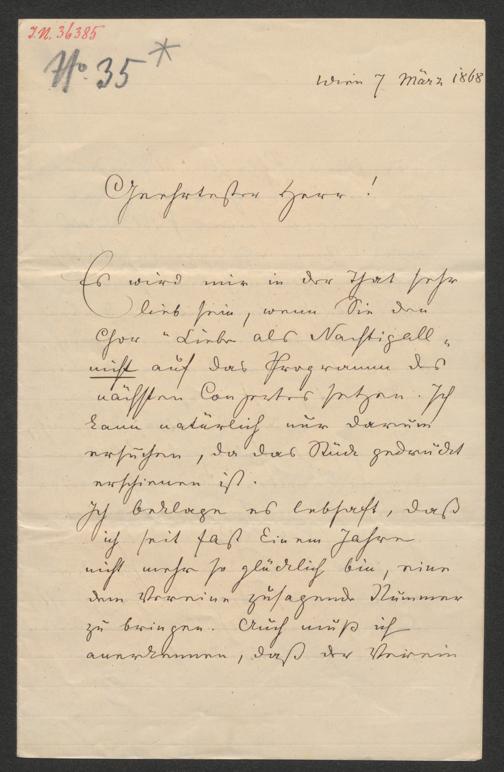 I.N. 36385
No. 35 *
Wien 7 März 1868
Geehrtester Herr!
Es wird mir in der That sehr
lieb sein, wenn Sie den
Chor "Liebe als Nachtigall"
nicht auf das Programm des
nächsten Conzertes setzen. Ich
kann natürlich nur darum
ersuchen, da das Stück gedruckt
erschienen ist.
Ich beklage es lebhaft, daß
ich seit fast Einem Jahre
nicht mehr so glücklich bin, eine
dem Vereine zusagende Nummer
zu bringen. Auch muß ich
anerkennen, daß der Verein